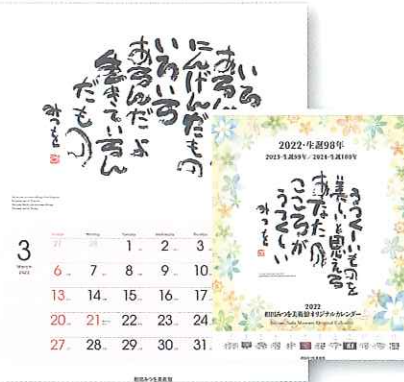 いろ
あるん
にんげんだもの
いろいろ
あるんだよ
生きているん
だもの
みつを
3
March
2022
27 28 1 2 3
6 7 8 9 10
13 14 15 16 17
20 21 22 23 24
27 28 29 30 31
相田みつを美術館
2022・生誕98年
2023・生誕99年/2024・生誕100年
うつくしいものを
美しいと思える
あなたの
こころが
うつくしい
みつを
2022
相田みつを美術館オリジナルカレンダー